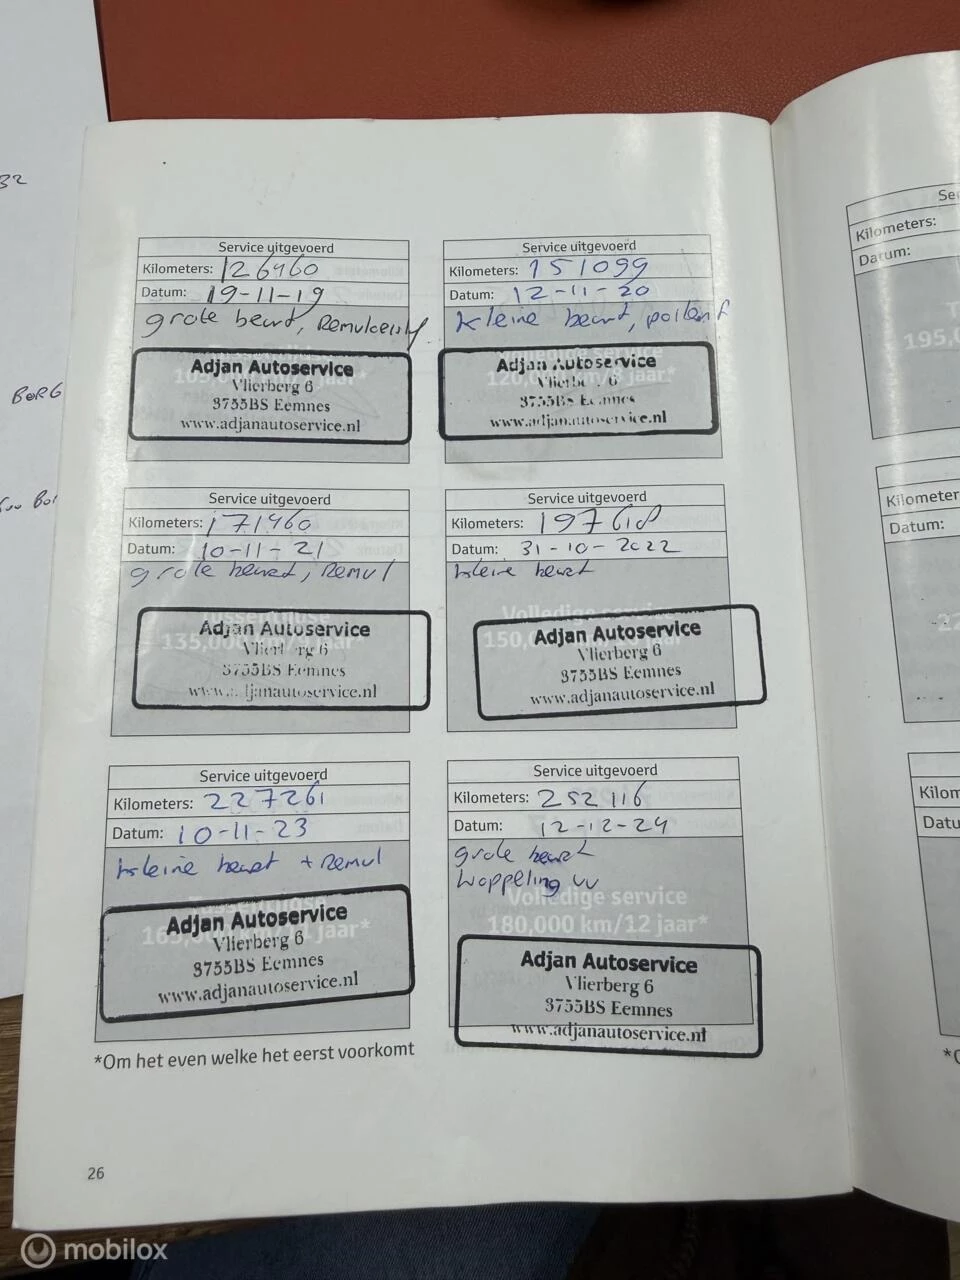 32
BORG
Service uitgevoerd
Kilometers: 126460
Datum: 19-11-19
grote beurt,
105,000 km/7 jaar*
Adjan Autoservice
Vlierberg 6
3755BS Eemnes
www.adjanautoservice.nl
Service uitgevoerd
Kilometers: 151099
Datum: 12-11-20
kleine beurt, pollenf
Volledige service
120,000 km/8 jaar*
Adjan Autoservice
Vlierberg 6
3755BS Eemnes
www.adjanautoservice.nl
Service uitgevoerd
Kilometers: 171460
Datum: 10-11-21
grote beurt, Remvl
Tussentijdse
135,000 km/9 jaar*
Adjan Autoservice
Vlierberg 6
3755BS Eemnes
www.adjanautoservice.nl
Service uitgevoerd
Kilometers: 197618
Datum: 31-10-2022
kleine beurt
Volledige service
150,000
Adjan Autoservice
Vlierberg 6
3755BS Eemnes
www.adjanautoservice.nl
Service uitgevoerd
Kilometers: 227261
Datum: 10-11-23
kleine beurt + Remvl
Tussentijdse
165,000 km/11 jaar*
Adjan Autoservice
Vlierberg 6
3755BS Eemnes
www.adjanautoservice.nl
Service uitgevoerd
Kilometers: 252116
Datum: 12-12-24
grote beurt
koppeling vv
Volledige service
180,000 km/12 jaar*
Adjan Autoservice
Vlierberg 6
3755BS Eemnes
www.adjanautoservice.nl
*Om het even welke het eerst voorkomt
26
Ser
Kilometers:
Datum:
195,0
Kilometer
Datum:
Kilom
Datu
mobilox